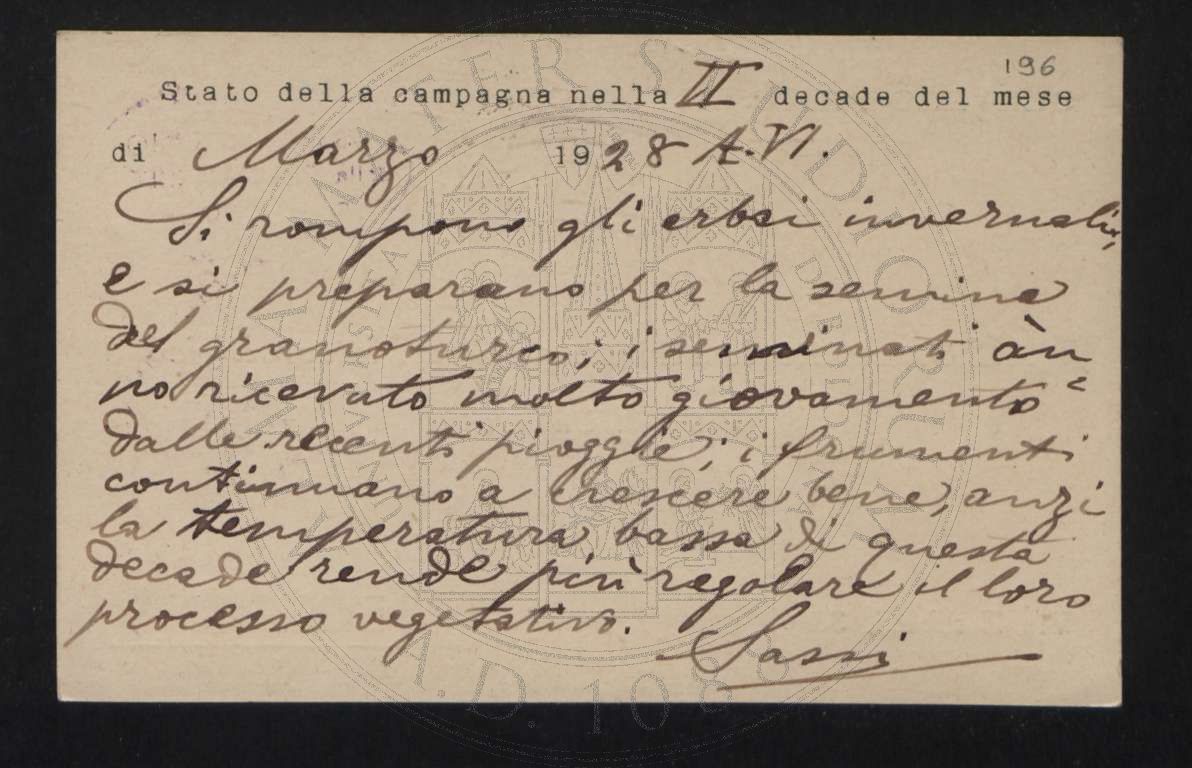 196
Stato della campagna nella II decade del mese
di Marzo 1928 A.VI.
Si rompono gli erbai invernali,
e si preparano per la semina
del granoturco; i seminati àn=
no ricevuto molto giovamento
dalle recenti pioggie; i frumenti
continuano a crescere bene, anzi
la temperatura bassa di questa
decade rende più regolare il loro
processo vegetativo.
Sassi
ALMA MATER STUDIORUM
A.D. 1088